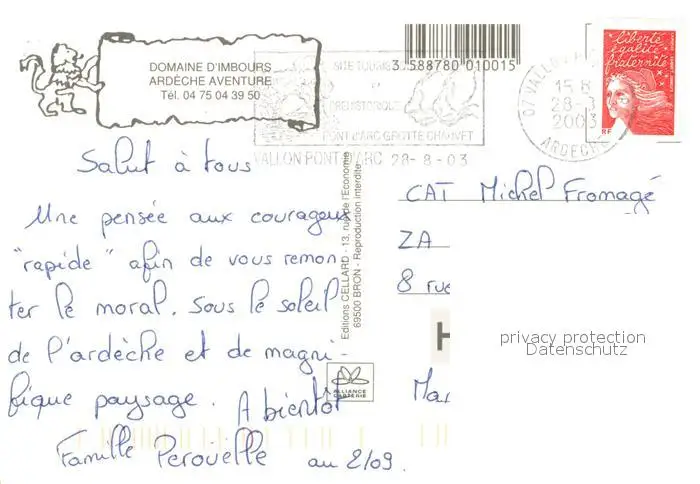 DOMAINE D'IMBOURS
ARDÈCHE AVENTURE
Tél. 04 75 04 39 50
3 588780 010015
SITE TOURIS
PREHISTORIQUE
PONT D'ARC GROTTE CHAUVET
VALLON PONT D'ARC 28-8-03
07 VALLON
15 H
28-8
2003
ARDECHE
liberté
égalité
fraternité
RF
Salut à tous
Une pensée aux courageux
"rapide" afin de vous remon-
ter le moral. Sous le soleil
de l'ardèche et de magni-
fique paysage. A bientôt
Famille Perouelle au 2/09.
Editions CELLARD - 13, rue de l'Economie
69500 BRON - Reproduction interdite
ALLIANCE
CARTERIE
CAT Michel Fromagé
ZA
8 rue
H
Mar
privacy protection
Datenschutz